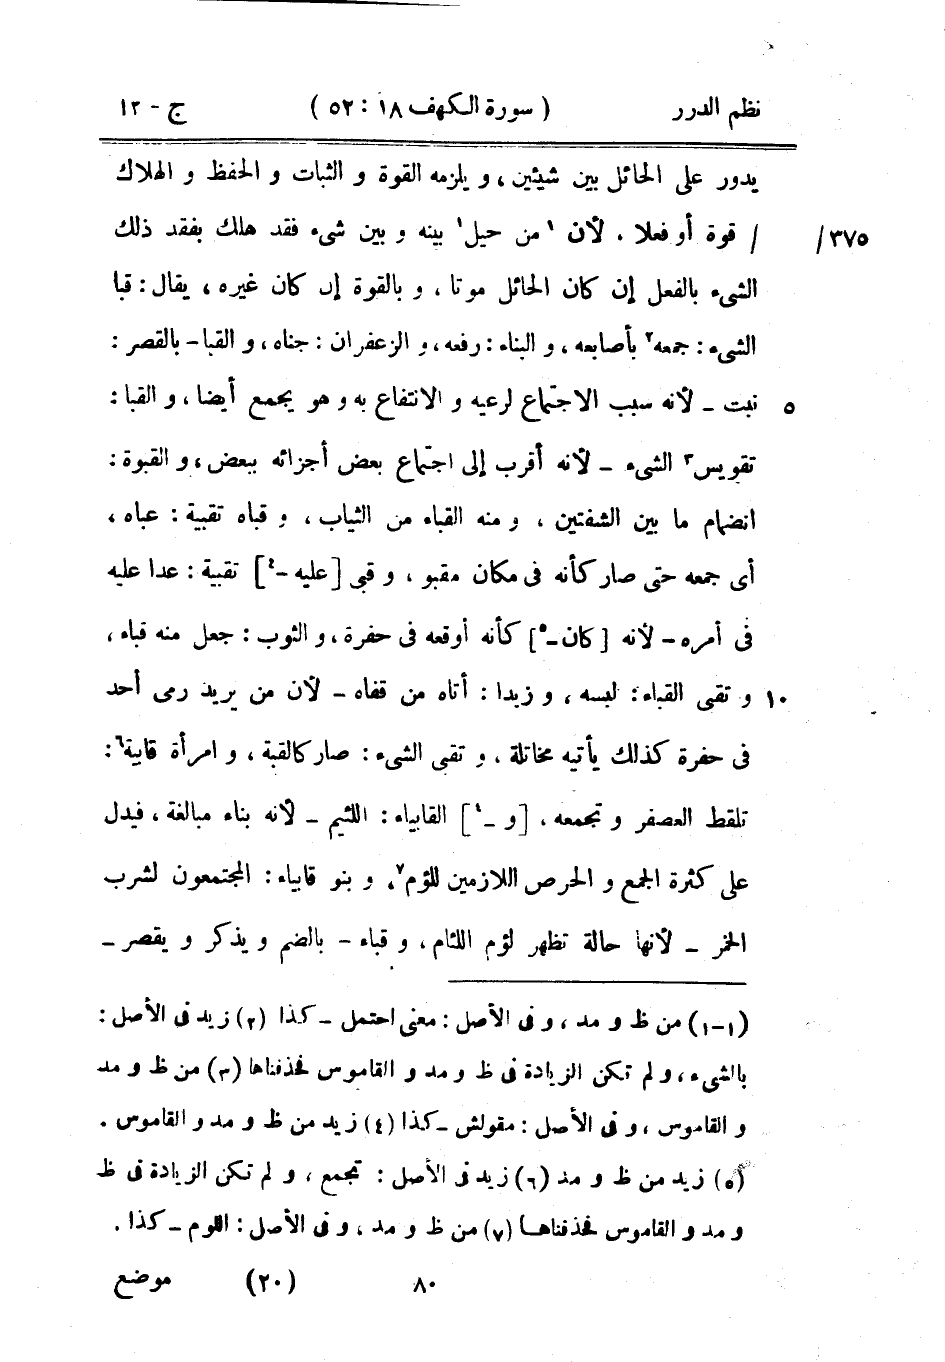 نظم الدرر ( سورة الكهف ١٨ : ٥٢ ) ج - ١٢
يدور على الحائل بين شيئين ، و يلزمه القوة و الثبات و الحفظ و الهلاك
٣٧٥/ / قوة أو فعلا . لأن ' من حيل ' بينه و بين شىء فقد هلك بفقد ذلك
الشىء بالفعل إن كان الحائل موتا ، و بالقوة إن كان غيره ، يقال : قبا
الشىء : جمعه ٢ بأصابعه ، و البناء : رفعه ، و الزعفران : جناه ، و القبا - بالقصر :
٥ نبت - لأنه سبب الاجتماع لرعيه و الانتفاع به و هو يجمع أيضا ، و القبا :
تقويس ٣ الشىء - لأنه أقرب إلى اجتماع بعض أجزائه ببعض ، و القبوة :
انضمام ما بين الشفتين ، و منه القباء من الثياب ، و قباه تقبية : عباه ،
أى جمعه حتى صار كأنه فى مكان مقبو ، و قبى [ عليه - ٤ ] تقبية : عدا عليه
فى أمره - لأنه [ كان - ٥ ] كأنه أوقعه فى حفرة ، و الثوب : جعل منه قباء ،
١٠ و تقبى القباء : لبسه ، و زيدا : أتاه من قفاه - لأن من يريد رمى أحد
فى حفرة كذلك يأتيه مخاتلة ، و تقبى الشىء : صار كالقبة ، و امرأة قابية ٦ :
تلقط العصفر و تجمعه ، [ و - ٤ ] القابياء : اللئيم - لأنه بناء مبالغة ، فيدل
على كثرة الجمع و الحرص اللازمين للؤم ٧ ، و بنو قابياء : المجتمعون لشرب
الخمر - لأنها حالة تظهر لؤم اللئام ، و قباء - بالضم و يذكر و يقصر -
(١-١) من ظ و مد ، و فى الأصل : معنى احتمل - كذا (٢) زيد فى الأصل :
بالشىء ، و لم تكن الزيادة فى ظ و مد و القاموس فحذفناها (٣) من ظ و مد
و القاموس ، و فى الأصل : مقولش - كذا (٤) زيد من ظ و مد و القاموس .
(٥) زيد من ظ و مد (٦) زيد فى الأصل : تجمع ، و لم تكن الزيادة فى ظ
و مد و القاموس فحذفناها (٧) من ظ و مد ، و فى الأصل : اللوم - كذا .
٨٠ (٢٠) موضع